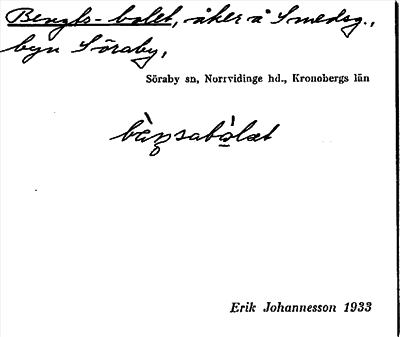 Bengts-bolet, åker å Smedsg.,
byn Söraby,
Söraby sn, Norrvidinge hd., Kronobergs län
Erik Johannesson 1933